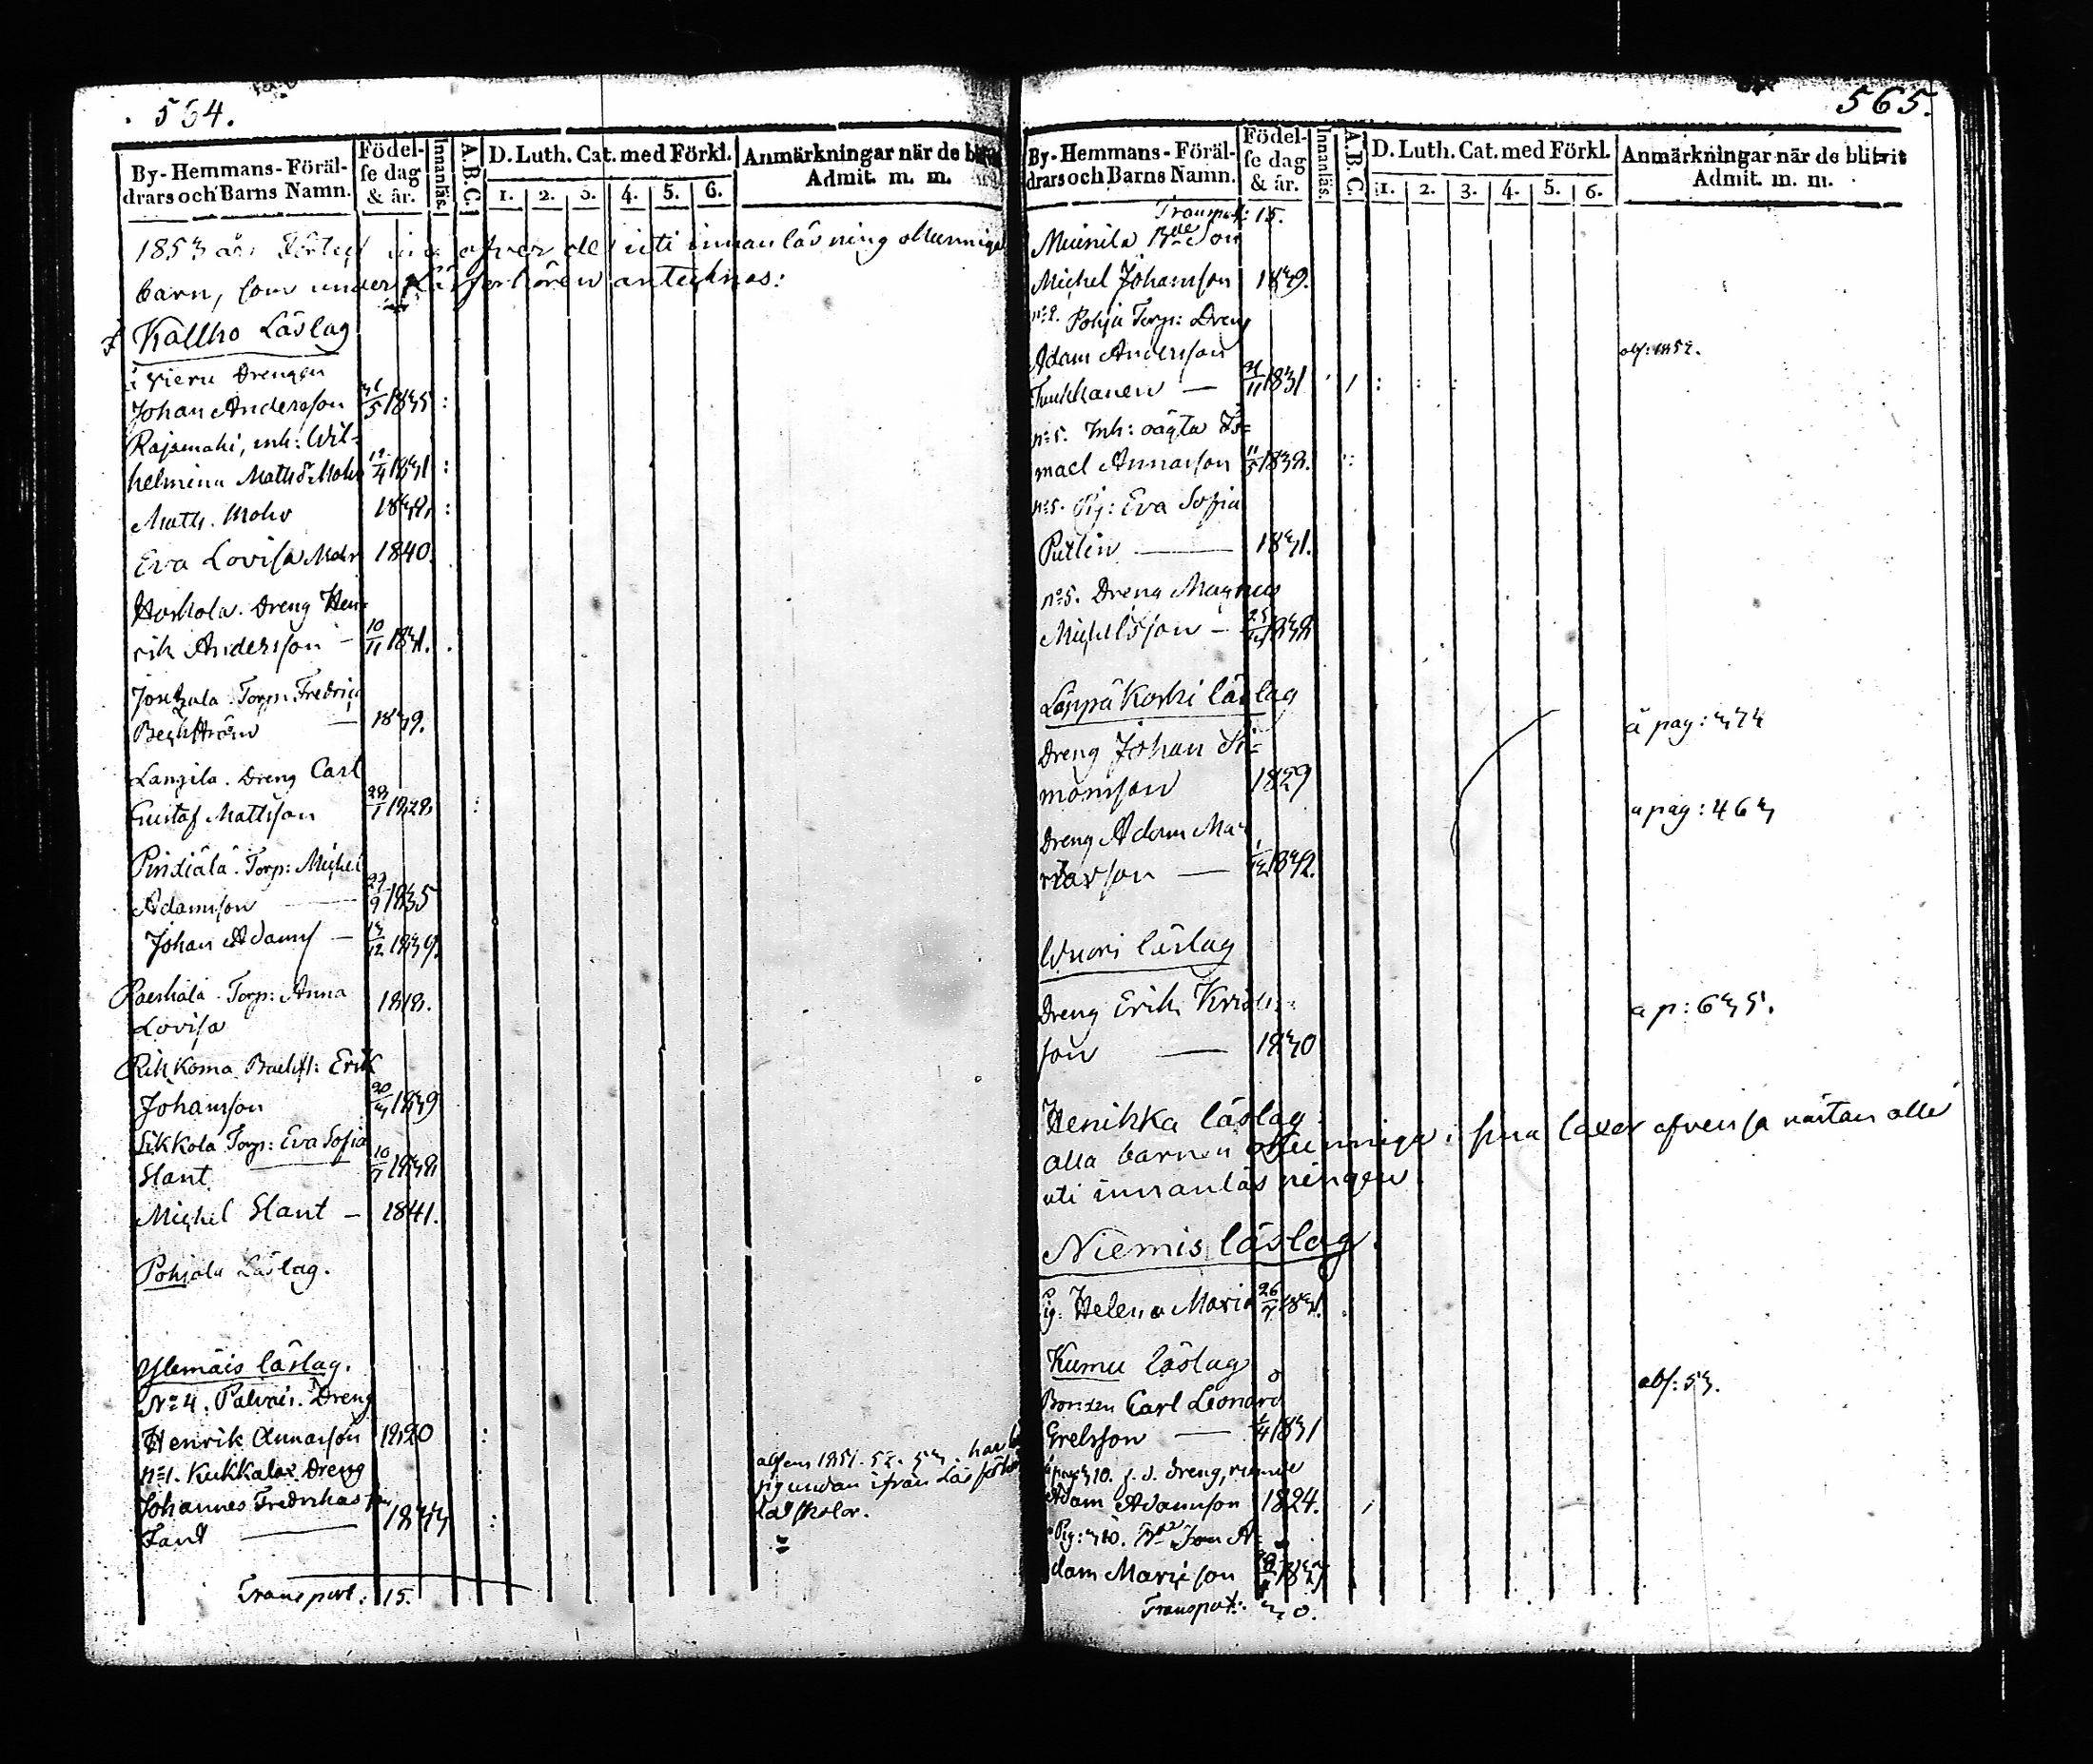 564.
By-Hemmans-Föräl-
drars och Barns Namn.
Födel-
se dag
& år.
Innanläs.
A.B.C.
D. Luth. Cat. med Förkl.
1. 2. 3. 4. 5. 6.
Anmärkningar när de
Admit. m. m.
1853 års öfver de uti innanläsning okunniga
barn, som under Läsförhören antecknas:
Kallho Läslag
Drengen
Johan Andersson 31/5 1835 :
inh: Wil-
helmina Mathsdr Mohr 12/4 1831 :
Math. Mohr 1838 :
Eva Lovisa Mohr 1840.
Horkola. Dreng Hen-
rik Andersson – 10/11 1831.
Torp: Fredric
– 1839.
Langila. Dreng Carl
Gustaf Mattsson 28/1 1828 :
Torp: Michel
Adamsson – 29/9 1835
Johan Adamss – 13/12 1839.
Torp: Anna
Lovisa 1818.
Rikkoma Erik
Johansson 20/3 1839
Sikkola Torp: Eva Sofia
Slant 10/7 1838
Michel Slant – 1841.
Pohjala Läslag.
Ylemäis läslag.
No 4. Palvais. Dreng
Henrik Annasson 1820 :
No 1. Kukkalax Dreng
Johannes Fredrikasson
Fant – 1833 :
1851. 52. 53. har
sig undan ifrån Läsförhör
Transport: 15.
565.
By-Hemmans-Föräl-
drars och Barns Namn.
Födel-
se dag
& år.
Innanläs.
A.B.C.
D. Luth. Cat. med Förkl.
1. 2. 3. 4. 5. 6.
Anmärkningar när de blifvit
Admit. m. m.
Transport: 15.
Munila Bde Son
Michel Johansson 1839.
No 2. Pohja Torp: Dreng
Adam Andersson abs: 1852.
– 1831
No 5. Inh: oägta Is-
mael Annasson 11/5 1838.
No 5. Pig: Eva Sofia
Putlin – 1831.
No 5. Dreng Magnus
Michelsson – 1838
Läppäkoski läslag
Dreng Johan Si- å pag: 373
monsson 1829
Dreng Adam Ma- a pag: 463
riasson – 1832.
Wuori läslag
Dreng Erik a p: 635.
son – 1830
Henikka läslag:
alla barnen okunniga i sina laxor äfven så nästan alle
uti innanläsningen.
Niemis läslag.
Pig. Helena Maria 26/7 1831.
Kumu läslag
Bonden Carl Leonard abs: 53.
Grelsson – 1831
Dreng,
Adam Adamsson 1824.
Son A-
dam Mariæson 1837
Transport: 30.